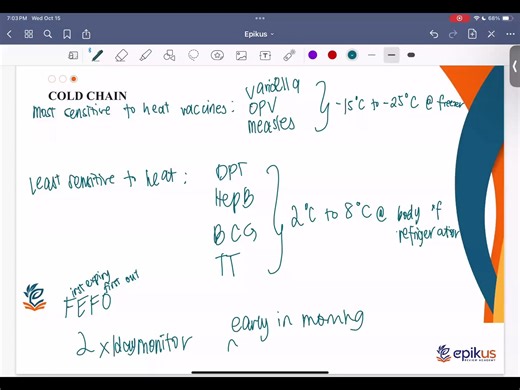 7:03 PM Wed Oct 15
68%
Epikus
COLD CHAIN
most sensitive to heat vaccines: varicella
OPV
measles
-15°C to -25°C @ freezer
Least sensitive to heat:
DPT
HepB
BCG
TT
2°C to 8°C @ body of
refrigeration
first expiry first out
FEFO
2x/day monitor
early in morning
epikus
REVIEW ACADEMY